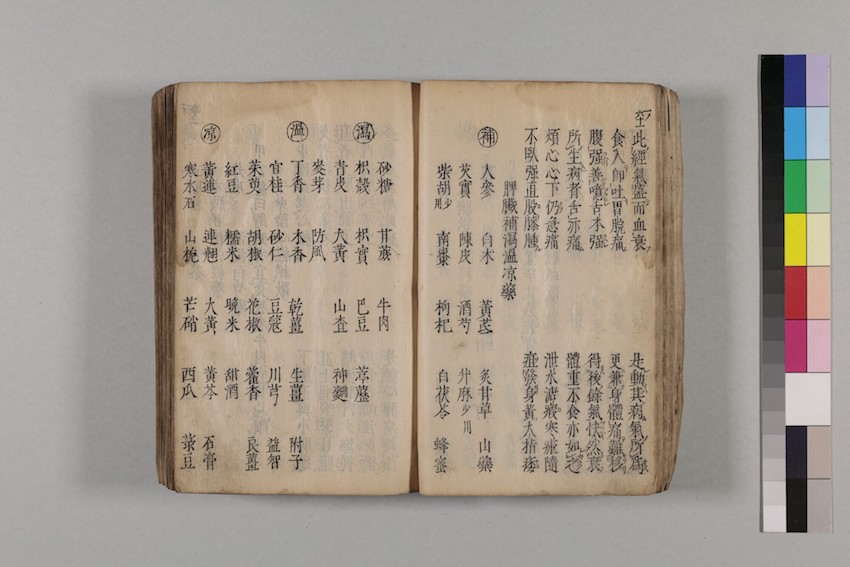 此經氣盛而血衰 是動其病氣所為
食入即吐胃脘痛 更兼身體痛難移
腹强善噫舌本强 得後餘氣快然衰
所生病者舌亦痛 體重不食亦如之
煩心心下仍急痛 泄水溏瘕寒瘧隨
不臥强直股膝腫 疸發身黃大指痿
脾臟補瀉溫凉藥
補 人參 白朮 黃芪 炙甘草 山藥
芡實 陳皮 酒芍 升麻少用
柴胡少用 南棗 枸杞 白茯苓 蜂蜜
砂糖 甘蔗 牛肉
瀉 枳殼 枳實 巴豆 葶藶
青皮 大黃 山查 神麯
麥芽 防風
溫 丁香 木香 乾薑 生薑 附子
官桂 砂仁 豆蔻 川芎 益智
茱萸 胡椒 花椒 藿香 良薑
紅豆 糯米 晚米 甜酒
凉 黃連 連翹 大黃 黃芩 石膏
寒水石 山梔 芒硝 西瓜 菉豆